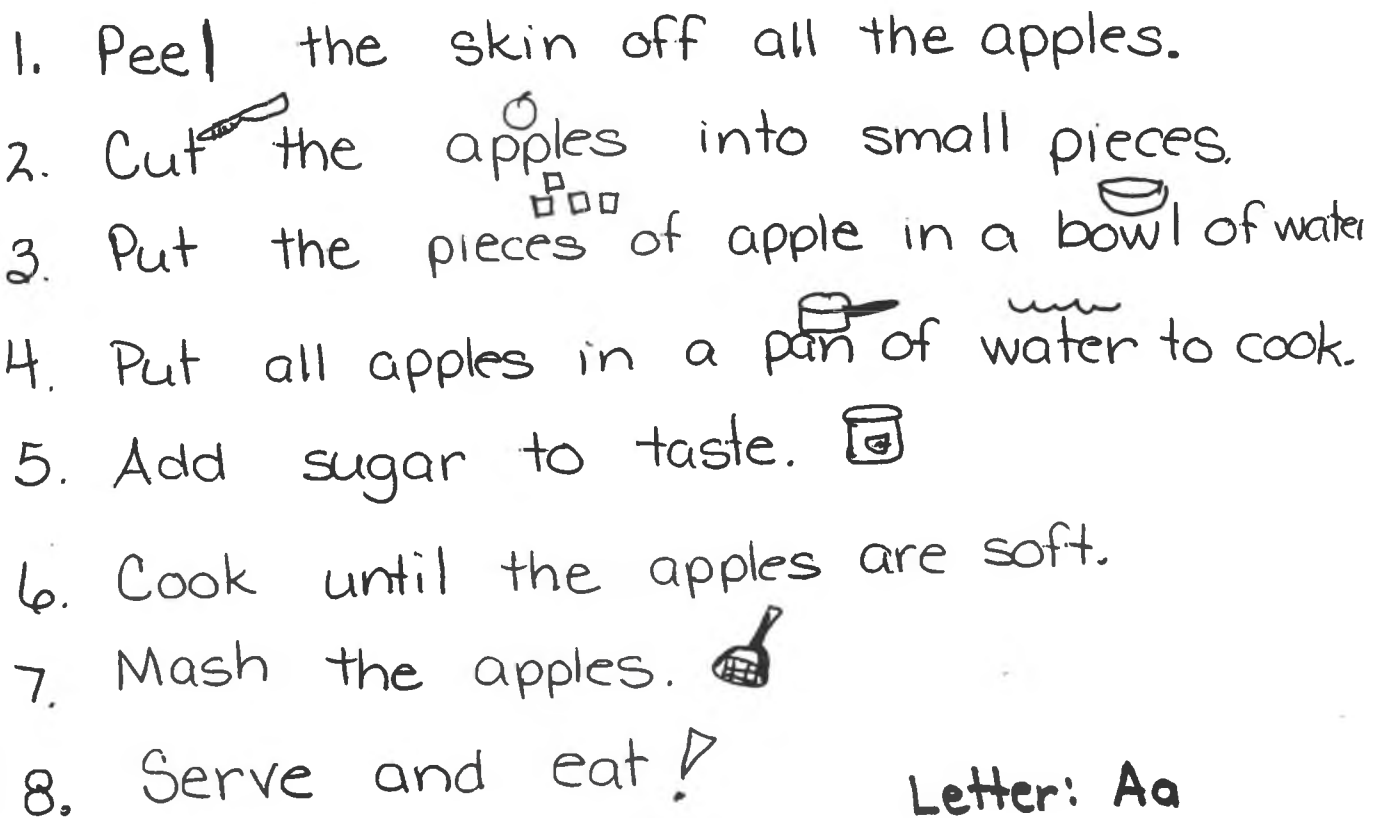 1. Peel the skin off all the apples.
2. Cut the apples into small pieces.
3. Put the pieces of apple in a bowl of water
4. Put all apples in a pan of water to cook.
5. Add sugar to taste.
6. Cook until the apples are soft.
7. Mash the apples.
8. Serve and eat!
Letter: Aa